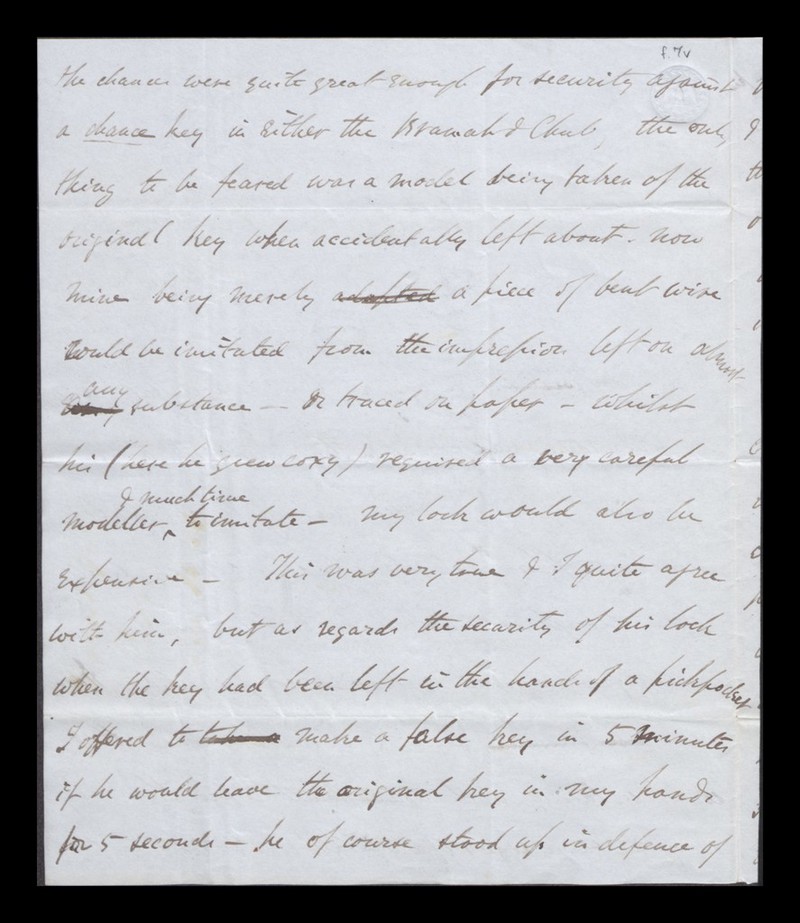 f.7v
the chances were quite great enough for security against
a chance key in either the Bramah & Chub, the only
thing to be feared was a model being taken of the
original key when accidentally left about. now
mine being merely adapted a piece of bent wire
could be imitated from the impression left on almost
any
substance — or traced on paper – whilst
his (here he grew coxy) required a very careful
& much time
modeller, to imitate – my lock would also be
expensive – This was very true & I quite agree
with him, but as regards the security of his lock
when the key had been left in the hands of a pickpocket
I offered to take a make a false key in 5 minutes
if he would leave the original key in my hands
for 5 seconds – he of course stood up in defence of